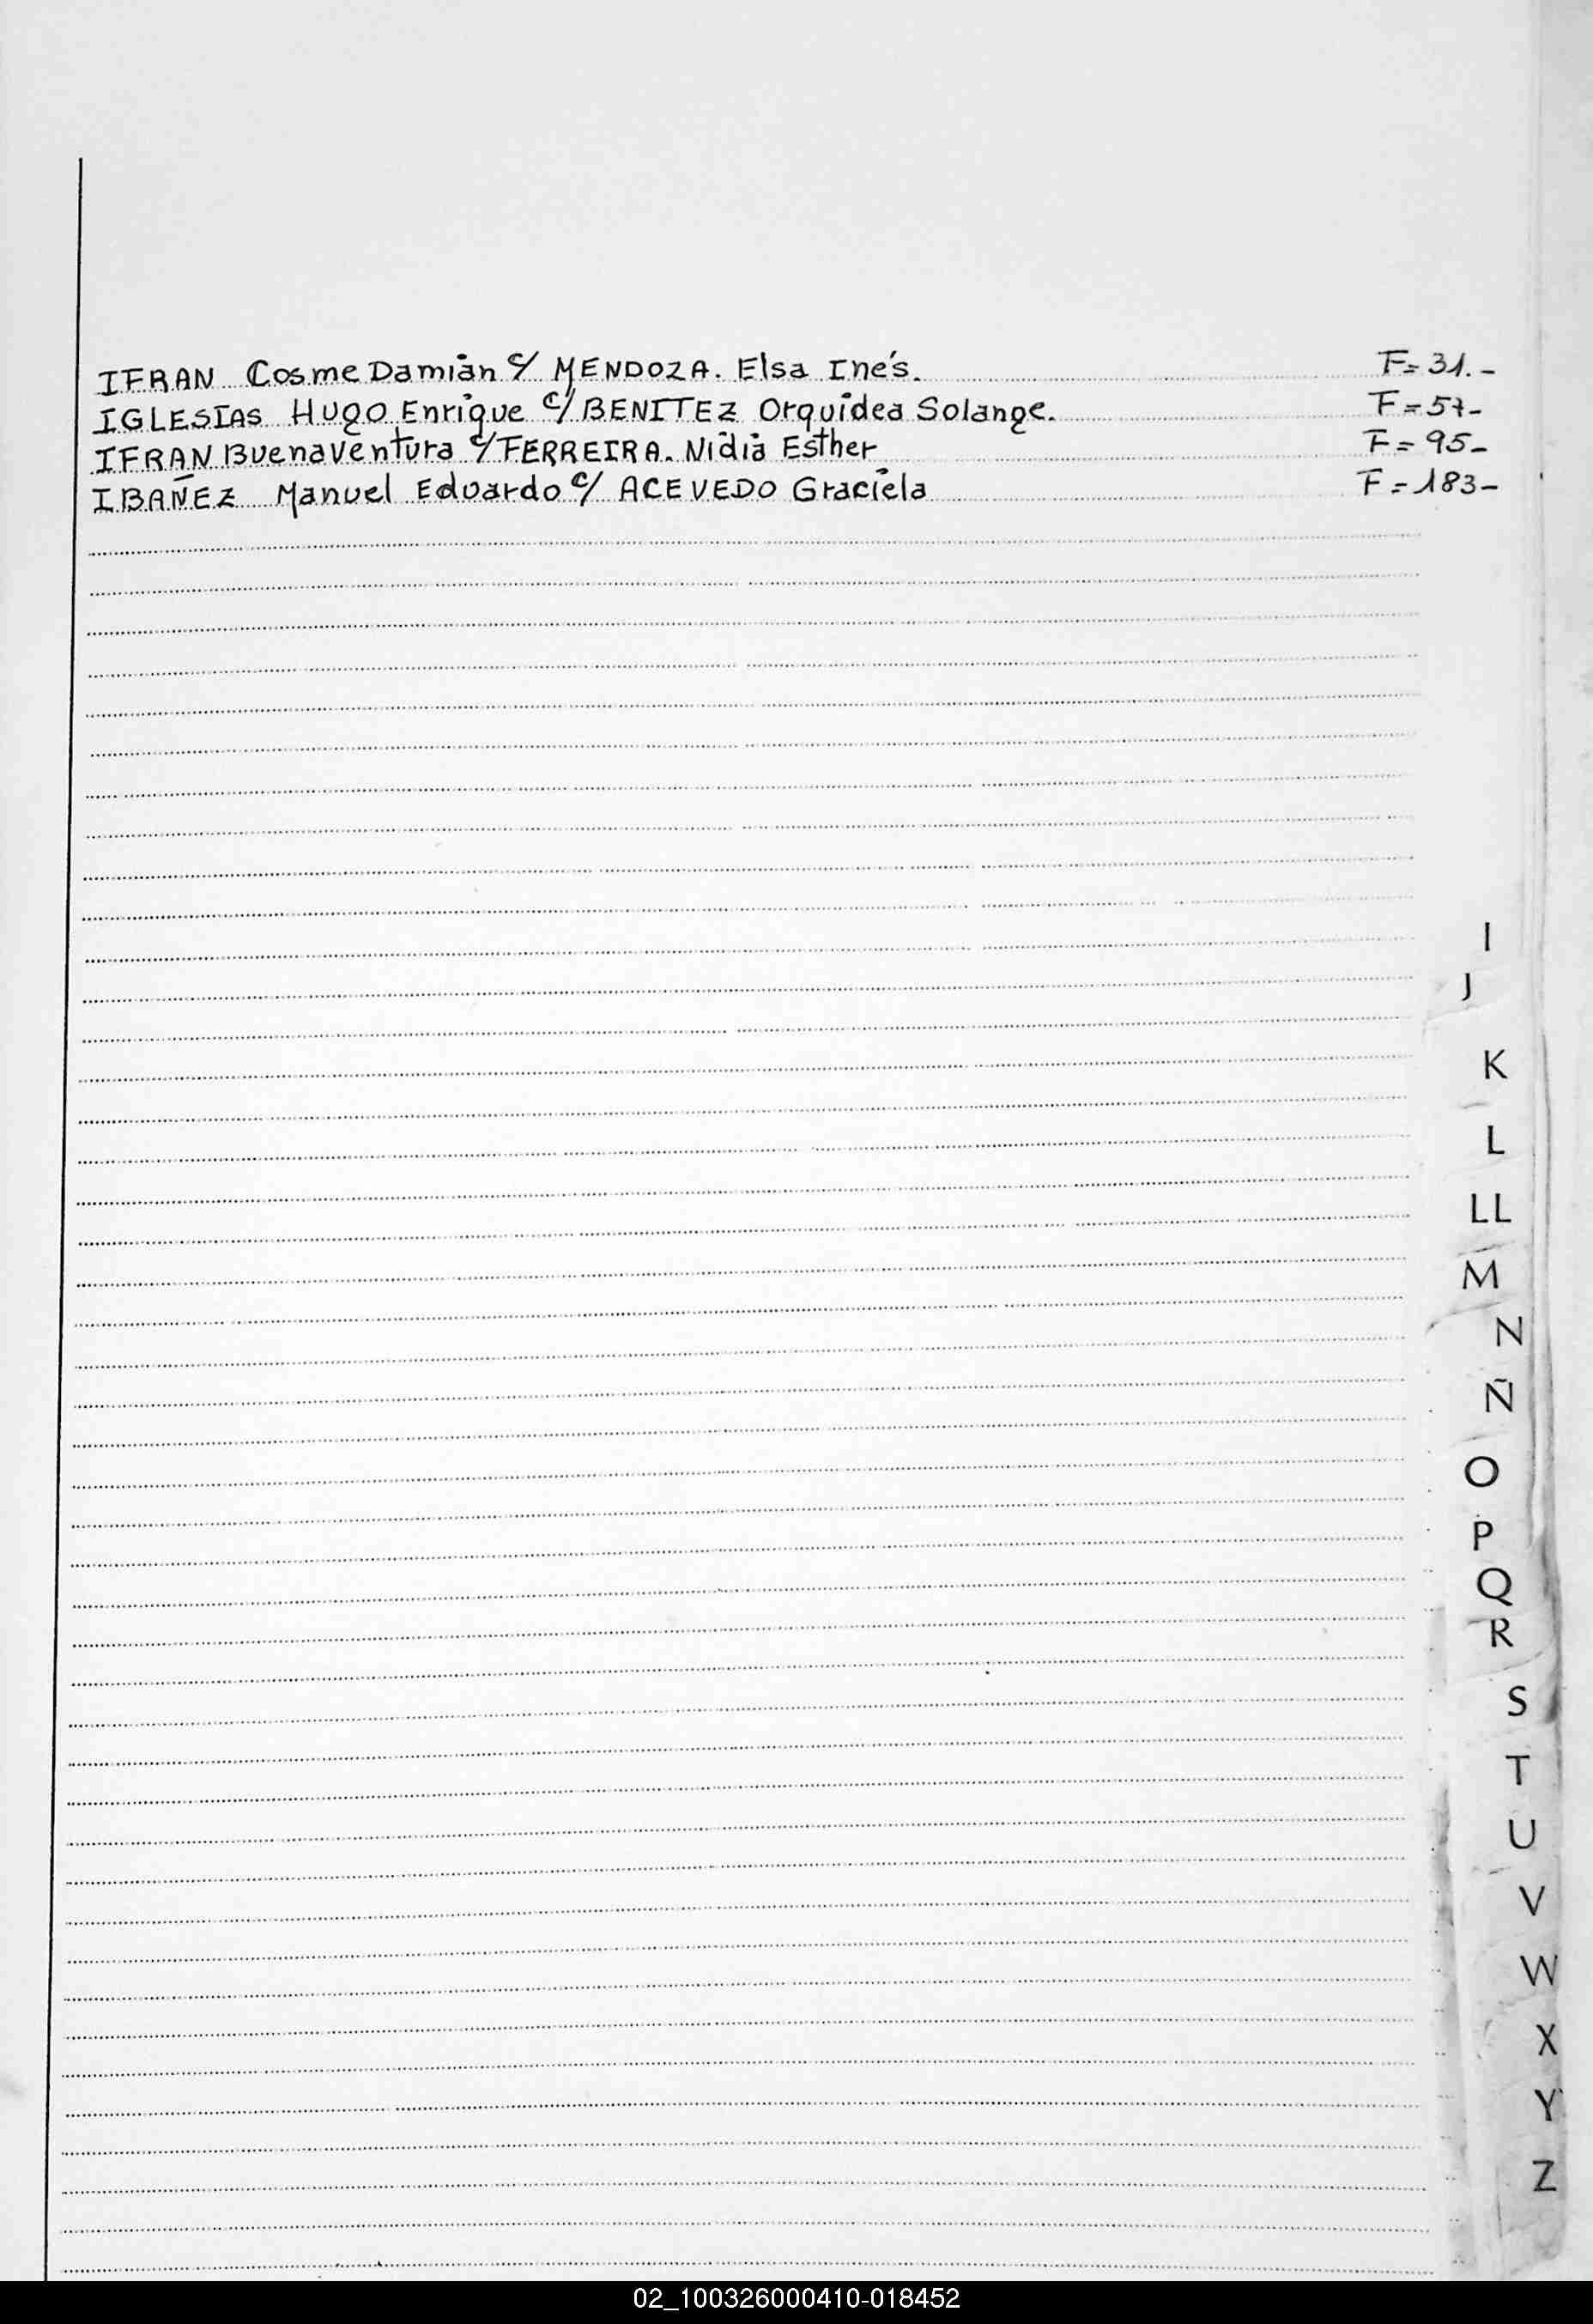 IFRAN Cosme Damián c/ MENDOZA. Elsa Inés. F=31.-
IGLESIAS Hugo Enrique c/ BENITEZ Orquídea Solange. F=57-
IFRAN Buenaventura c/ FERREIRA. Nidia Esther F=95-
IBAÑEZ Manuel Eduardo c/ ACEVEDO Graciela F=183-
I
J
K
L
LL
M
N
Ñ
O
P
Q
R
S
T
U
V
W
X
Y
Z
02_100326000410-018452